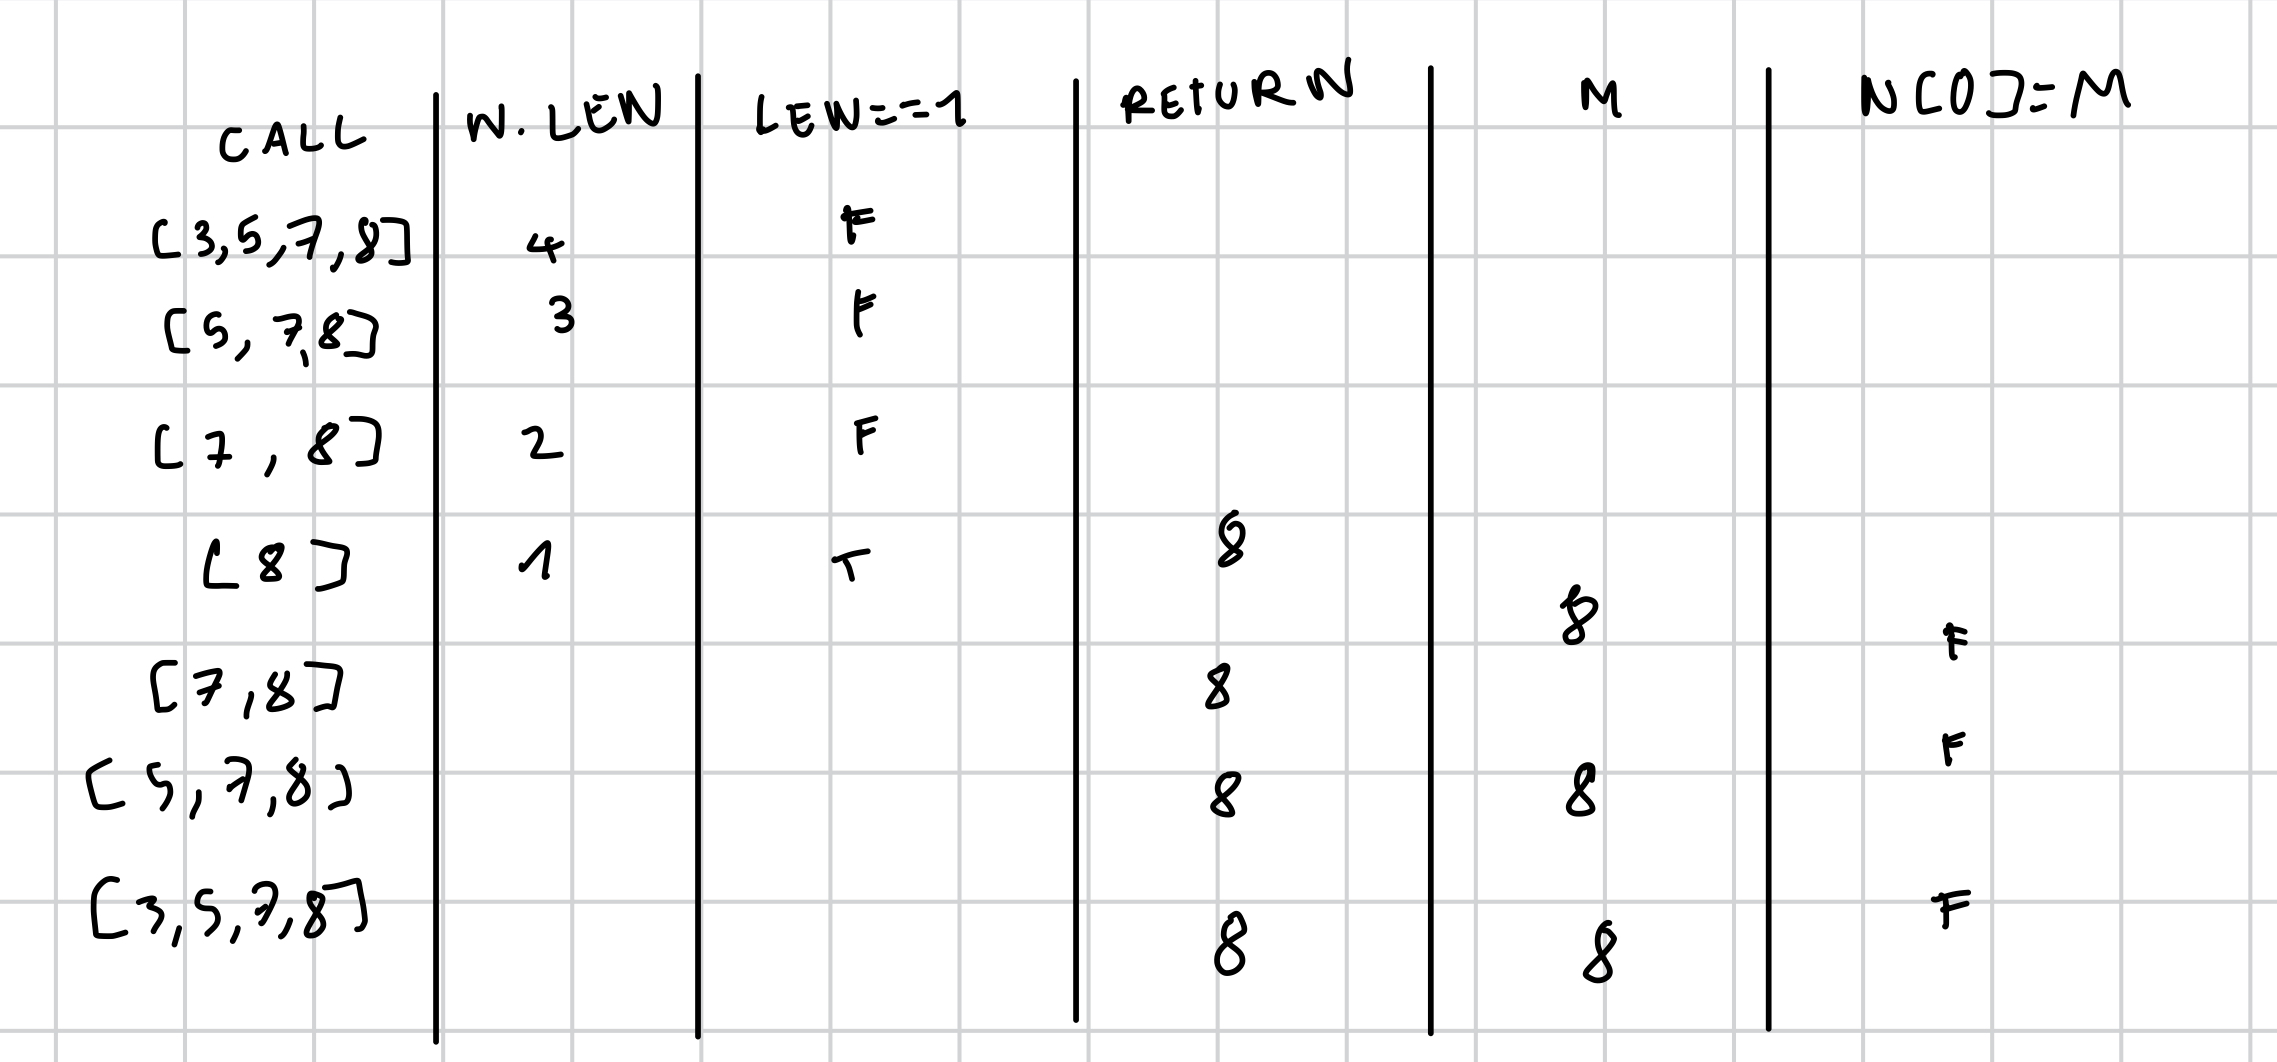 CALL N.LEN LEN==1 RETURN M N[0]=M
[3,5,7,8] 4 F
[5,7,8] 3 F
[7,8] 2 F
[8] 1 T 8
[7,8] 8 8 F
[5,7,8] 8 8 F
[3,5,7,8] 8 8 F